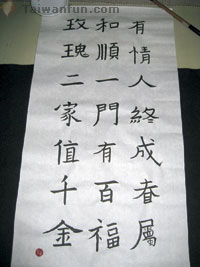 Taiwanfun.com
有情人終成眷屬
和順一門有百福
玫瑰二家值千金